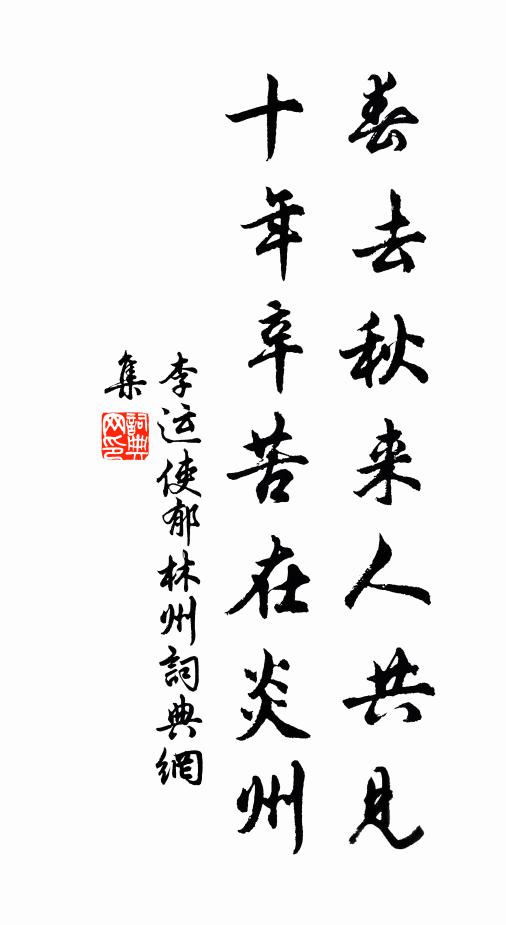 春去秋来人共見
十年辛苦在炎州
李运使郁林州詞典網
集
詞典
网印